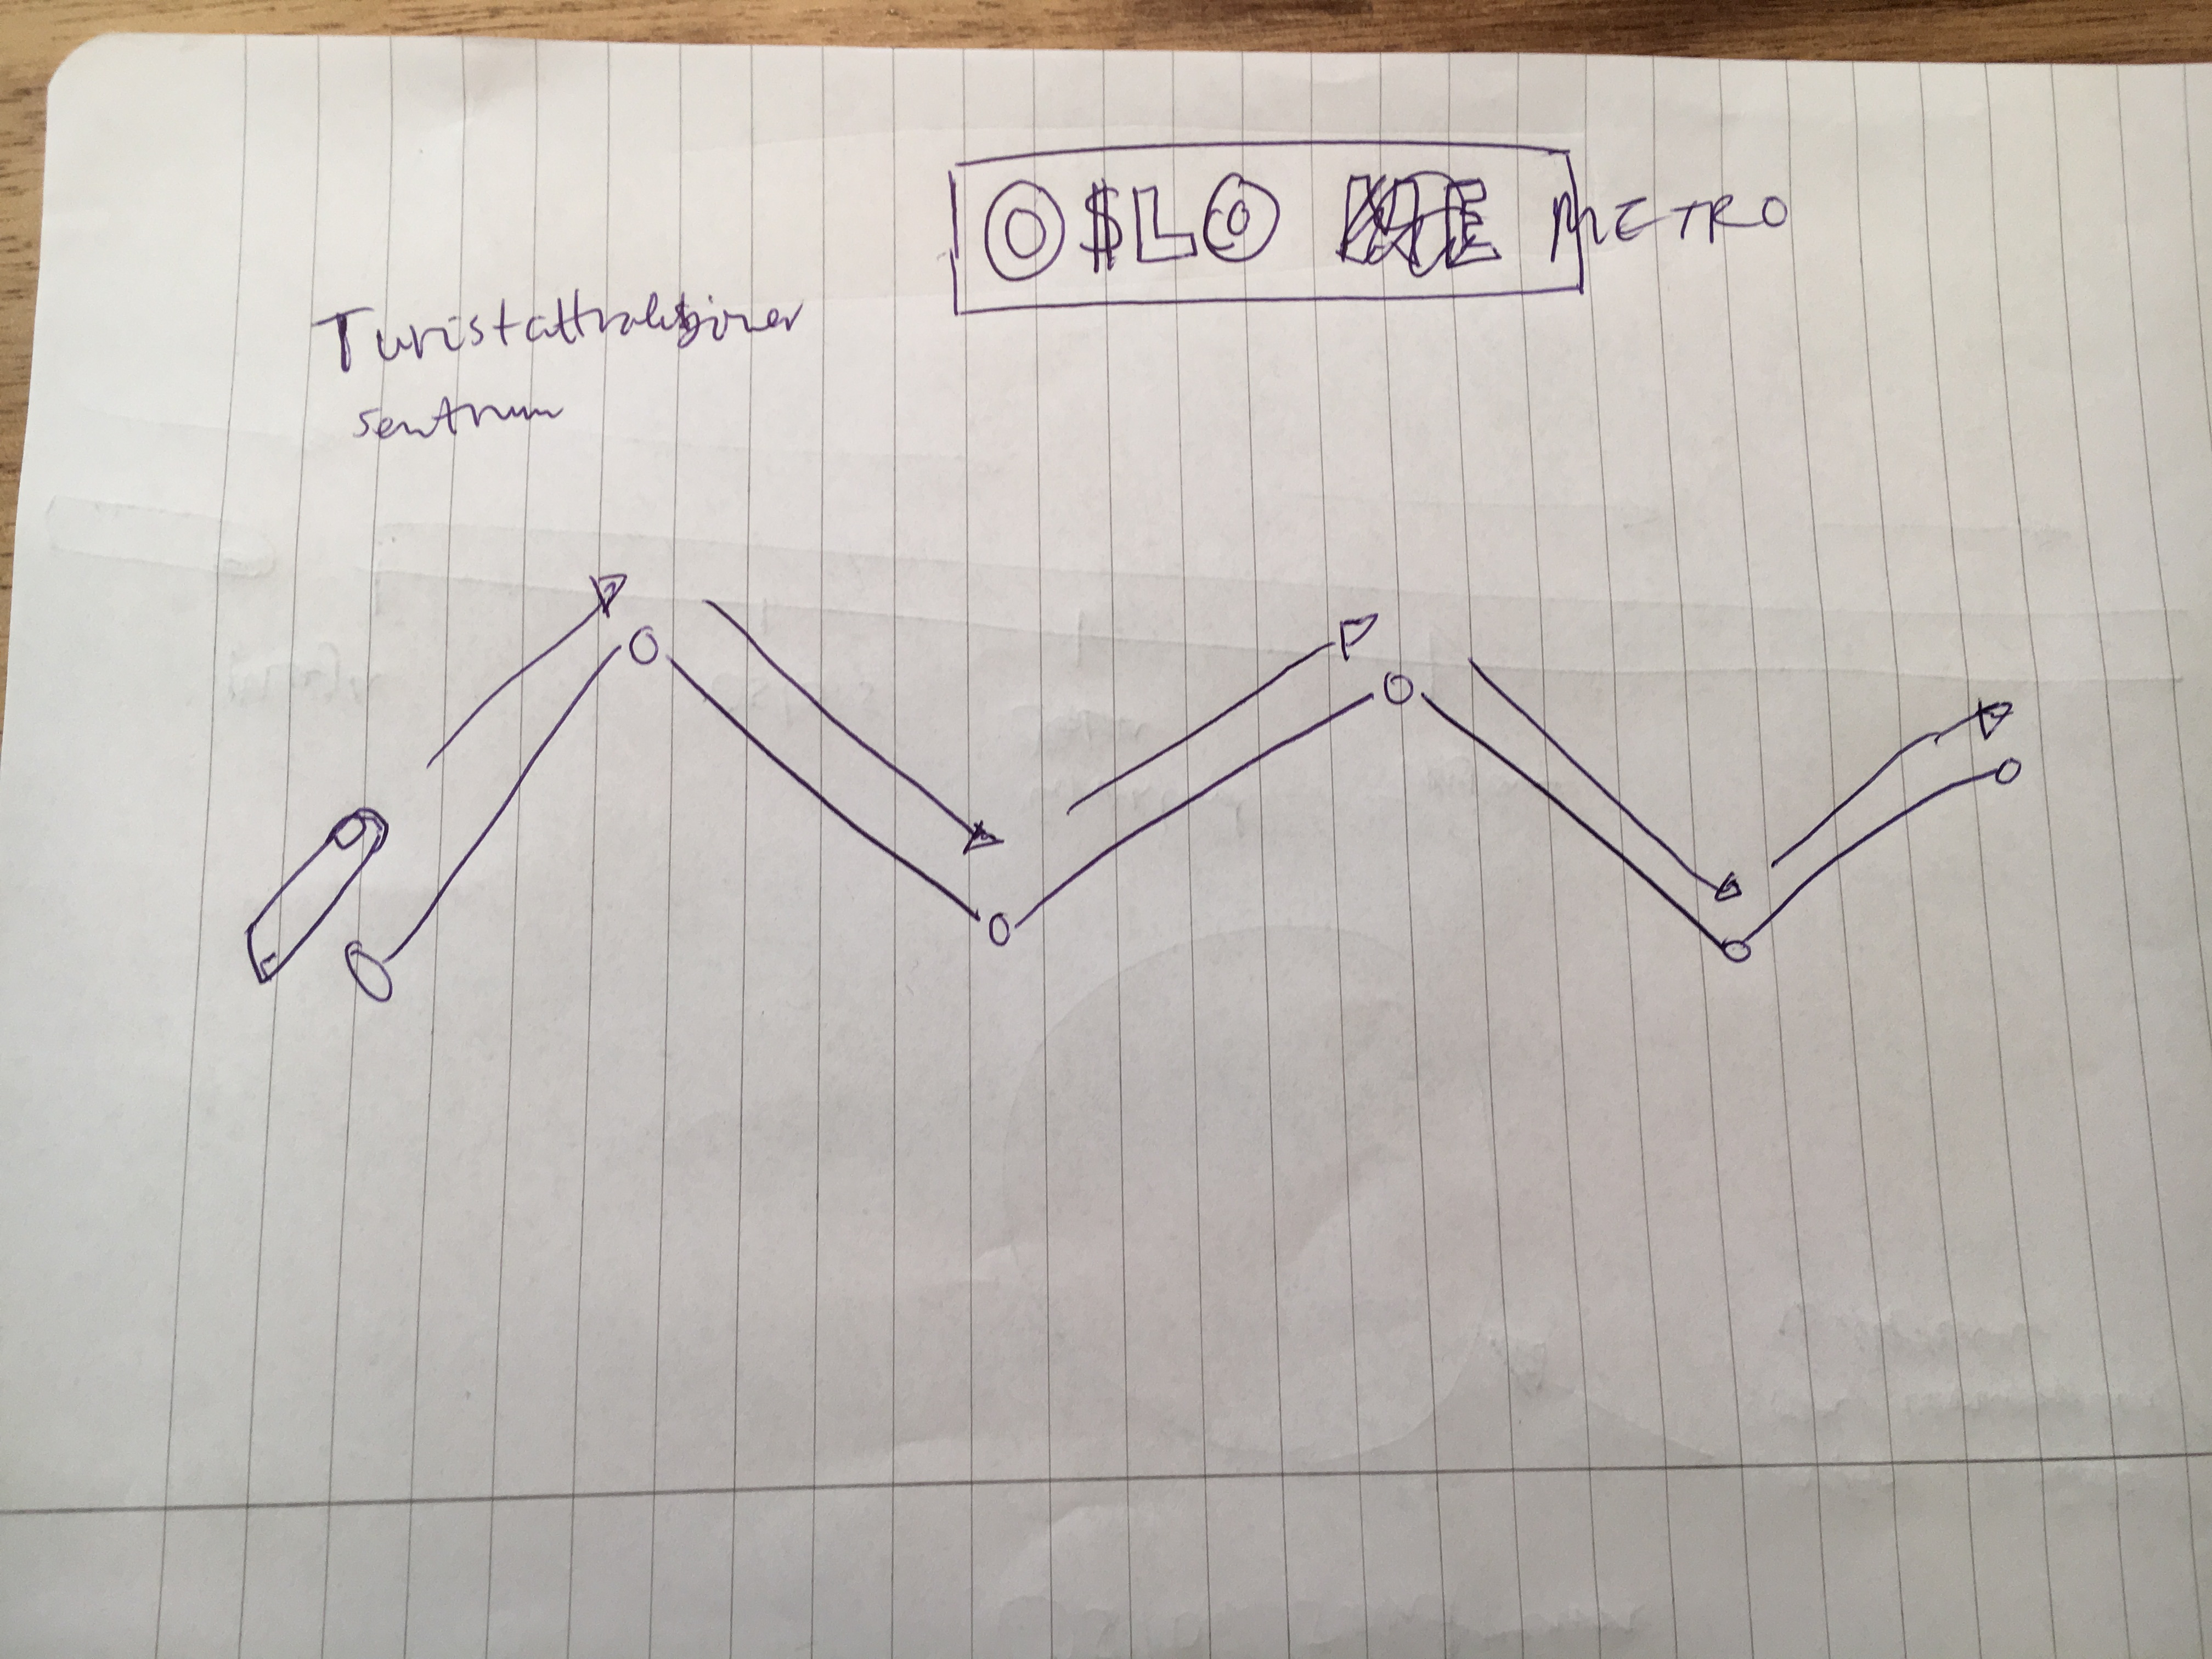 O$LO METRO
Turistattraksjoner
sentrum